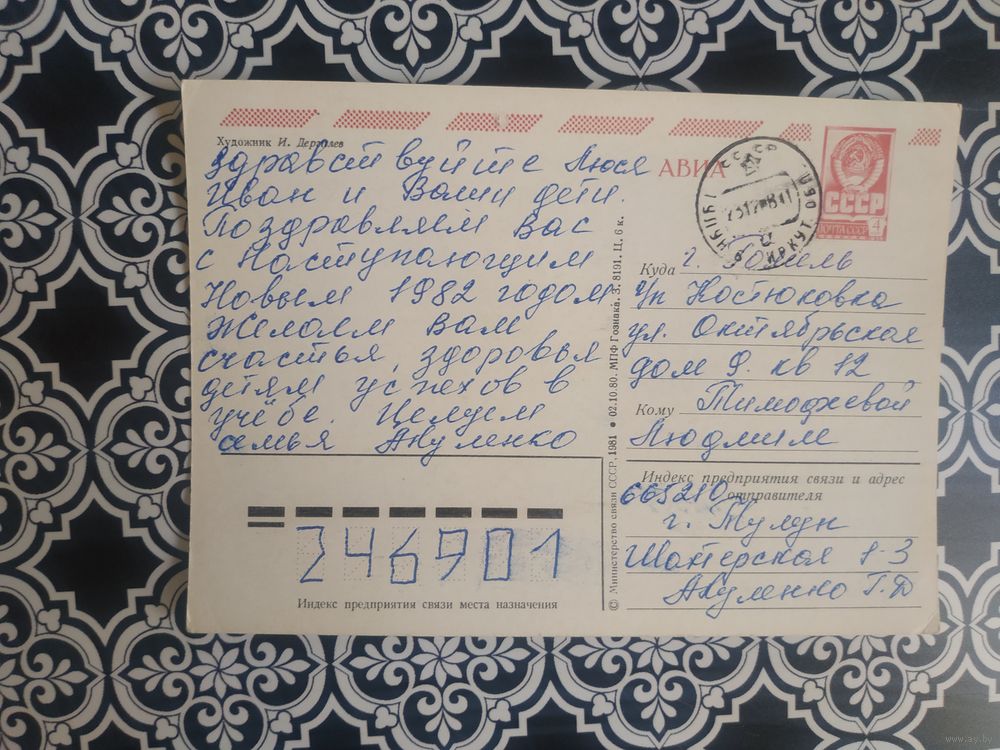 Художник И. Дергилев
Здравствуйте Люся
Иван и Ваши дети.
Поздравляем Вас
с Наступающим
Новым 1982 годом
Желаем Вам
счастья, здоровья
детям успехов в
учёбе. Целуем
семья Акуленко
АВИА
СССР
ПОЧТА СССР
4
Куда г. Гомель
г/п Костюковка
ул. Октябрьская
дом 9. кв 12
Кому Тимофеевой
Людмиле
Индекс предприятия связи и адрес
отправителя
665210
г. Тулун
Шахтерская 1-3
Акуленко Г.Д
© Министерство связи СССР, 1981 ● 02.10.80. МПФ Гознака. З. 8191. Ц. 6 к.
246901
Индекс предприятия связи места назначения
www.ay.by